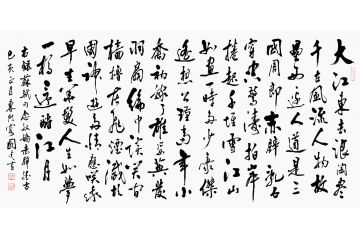 大江東去浪淘盡
千古風流人物故
壘西邊人道是三
國周郎赤壁亂石
穿空驚濤拍岸
捲起千堆雪江山
如畫一時多少豪傑
遙想公瑾當年小
喬初嫁了雄姿英發
羽扇綸巾談笑間
檣櫓灰飛煙滅故
國神遊多情應笑我
早生華髮人生如夢
一樽還酹江月